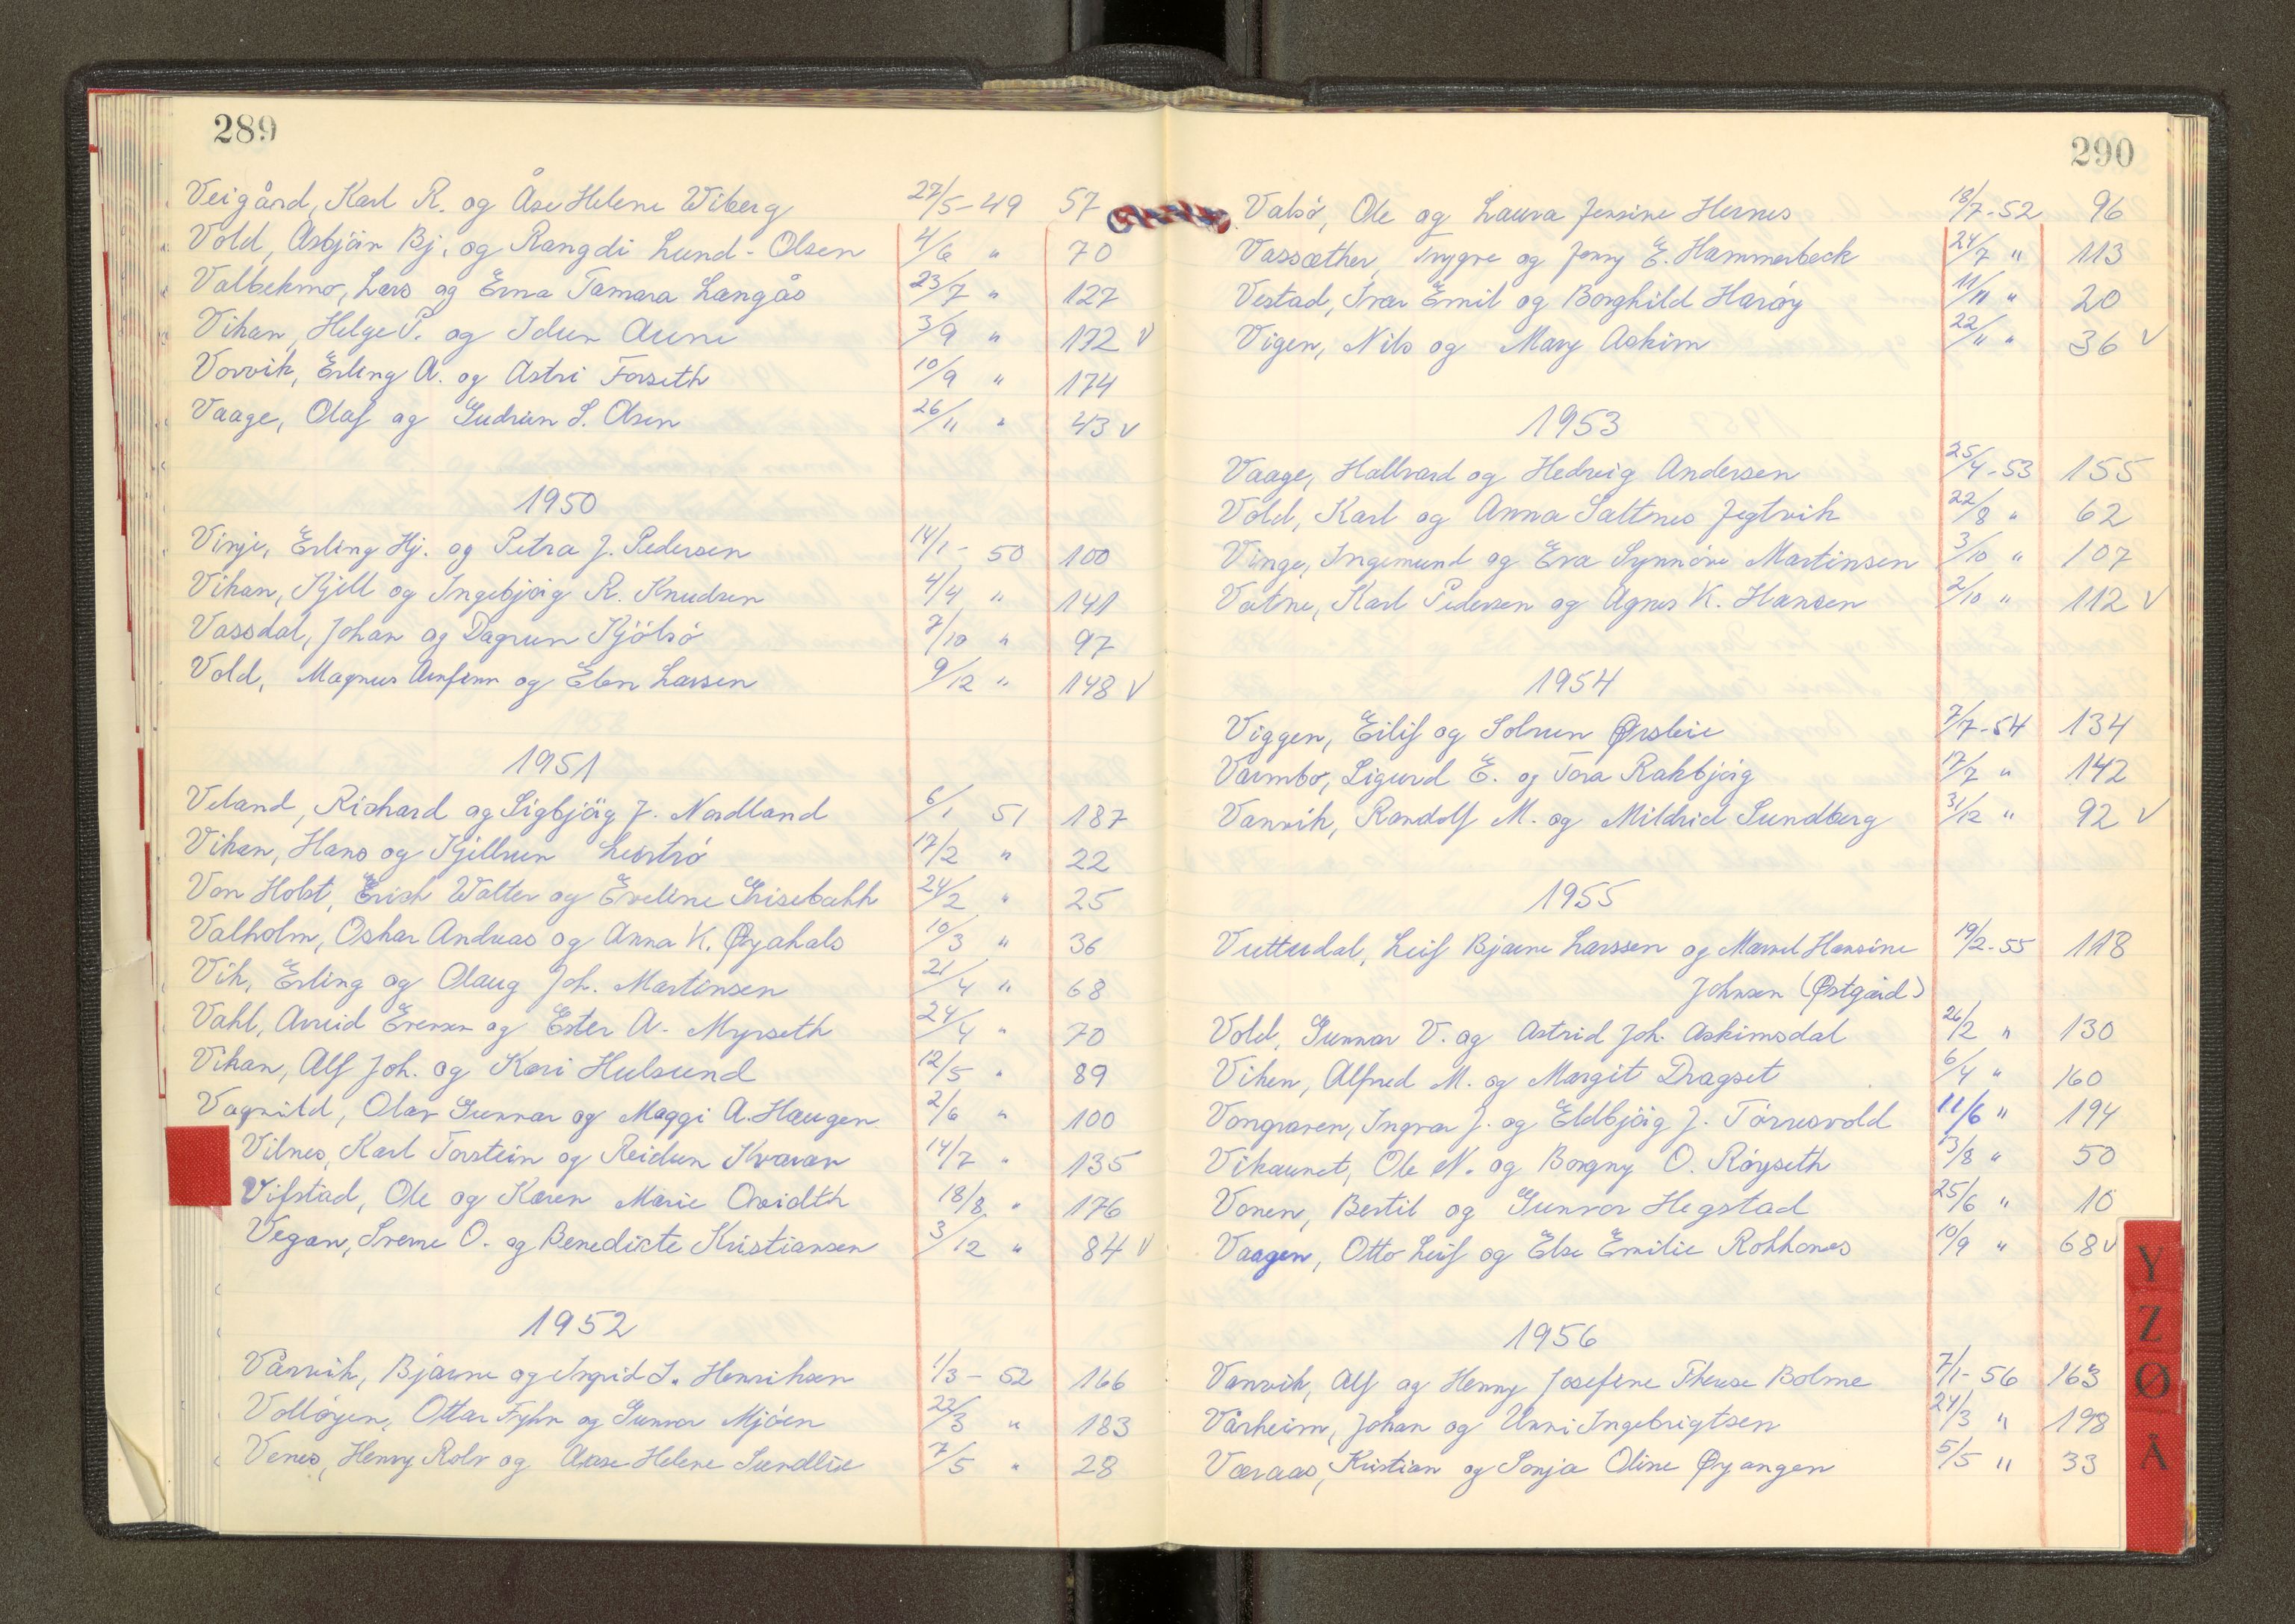 289
Veigård, Karl R. og Åse Helene Wiberg 27/5-49 57
Vold, Asbjörn Bj. og Rangdi Lund-Olsen 4/6 " 70
Valbekmo, Lars og Erna Tamara Langås 23/7 " 127
Vikan, Helge P. og Idun Aune 3/9 " 172 V
Vorvik, Erling A. og Astri Forseth 10/9 " 174
Vaage, Olaf og Gudrun S. Olsen 26/11 " 43 V
1950
Vinje, Erling Hj. og Petra J. Pedersen 14/1- 50 100
Vikan, Kjell og Ingebjörg R. Knudsen 4/4 " 141
Vassdal, Johan og Dagrun Kjölsö 7/10 " 97
Vold, Magnus Arnfinn og Elen Larsen 9/12 " 148 V
1951
Veland, Richard og Sigbjörg J. Nordland 6/1 51 187
Vikan, Hans og Kjellrun 17/2 " 22
Von Holst, Erich Walter og Eveline Grisebachh 24/2 " 25
Valholm, Oskar Andreas og Anna K. Øyahals 10/3 " 36
Vik, Erling og Olaug Joh. Martinsen 21/4 " 68
Vahl, Arvid Evensen og Ester A. Myrseth 24/4 " 70
Vikan, Alf Joh. og Kari Hulsund 12/5 " 89
Vagnild, Olav Gunnar og Maggi A. Haugen 2/6 " 100
Vilnes, Karl Torstein og Reidun Kvarav 14/7 " 135
Vifstad, Ole og Karen Marie Ovidth 18/8 " 176
Vegan, Sverre O. og Benedicte Kristiansen 3/12 " 84 V
1952
Vårvik, Bjarne og Ingrid I. Henriksen 1/3- 52 166
Vollöyen, Ottar Fryhn og Gunvor Mjöen 22/3 " 183
Venes, Henry Rolv og Aase Helene Sundlie 7/5 " 28
290
Valsö, Ole og Laura Jensine Hernes 18/7-52 96
Vassæther, Trygve og Jenny E. Hammerbeck 24/7 " 113
Vestad, Ivar Emil og Borghild Harøy 11/11 " 20
Vigen, Nils og Mary Askim 22/11 " 36 V
1953
Vaage, Hallvard og Hedvig Andersen 25/4-53 155
Vold, Karl og Anna Saltnes Jegtvik 22/8 " 62
Vinge, Ingemund og Eva Synnöve Martinsen 3/10 " 107
Vatne, Karl Pedersen og Agnes K. Hansen 2/10 " 112 V
1954
Viggen, Eilif og Solrun Ørsleie 7/7-54 134
Varmbo, Sigurd E. og Tora Rakbjörg 17/7 " 142
Vanvik, Randolf M. og Mildrid Sundberg 31/12 " 92 V
1955
Vuttudal, Leif Bjarne Larssen og Marvel Hansine 19/2-55 118
Johnsen (Østgård)
Vold, Gunnar V. og Astrid Joh. Askimsdal 26/2 " 130
Viken, Alfred M. og Margit Dragset 6/4 " 160
Vongraven, Ingvar J. og Eldbjörg J. Törresvold 11/6 " 194
Vikaunet, Ole N. og Borgny O. Røyseth 13/8 " 50
Vonen, Bertil og Gunvor Hegstad 25/6 " 10
Vaagen, Otto Leif og Else Emilie Rokkones 10/9 " 68 V
1956
Vanvik, Alf og Henny Josefine Therese Bolme 7/1-56 163
Vårheim, Johan og Unni Ingebrigtsen 24/3 " 198
Væraas, Kristian og Sonja Oline Øyangen 5/5 " 33
Y
Z
Ø
Å